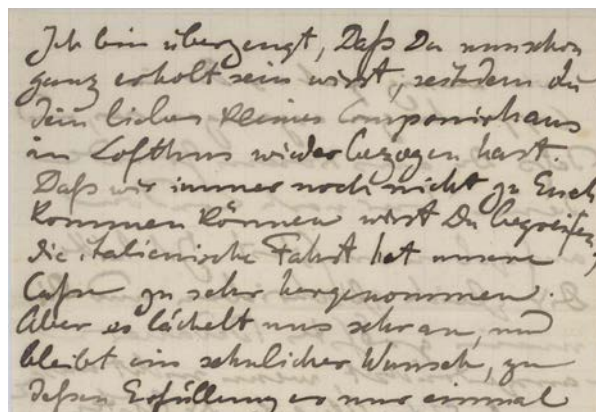 Ich bin überzeugt, Daſs Du nunschon
ganz erholt sein wirst, seitdem du
dein liebes kleines Componirhaus
in Lofthus wieder bezogen hast.
Daſs wir immer noch nicht zu Euch
kommen können wirst Du begreifen,
die italienische Fahrt hat unsere
Caſse zu sehr hergenommen.
Aber es lächelt uns sehr an, und
bleibt ein sehnlicher Wunsch, zu
deſsen Erfüllung es nur einmal